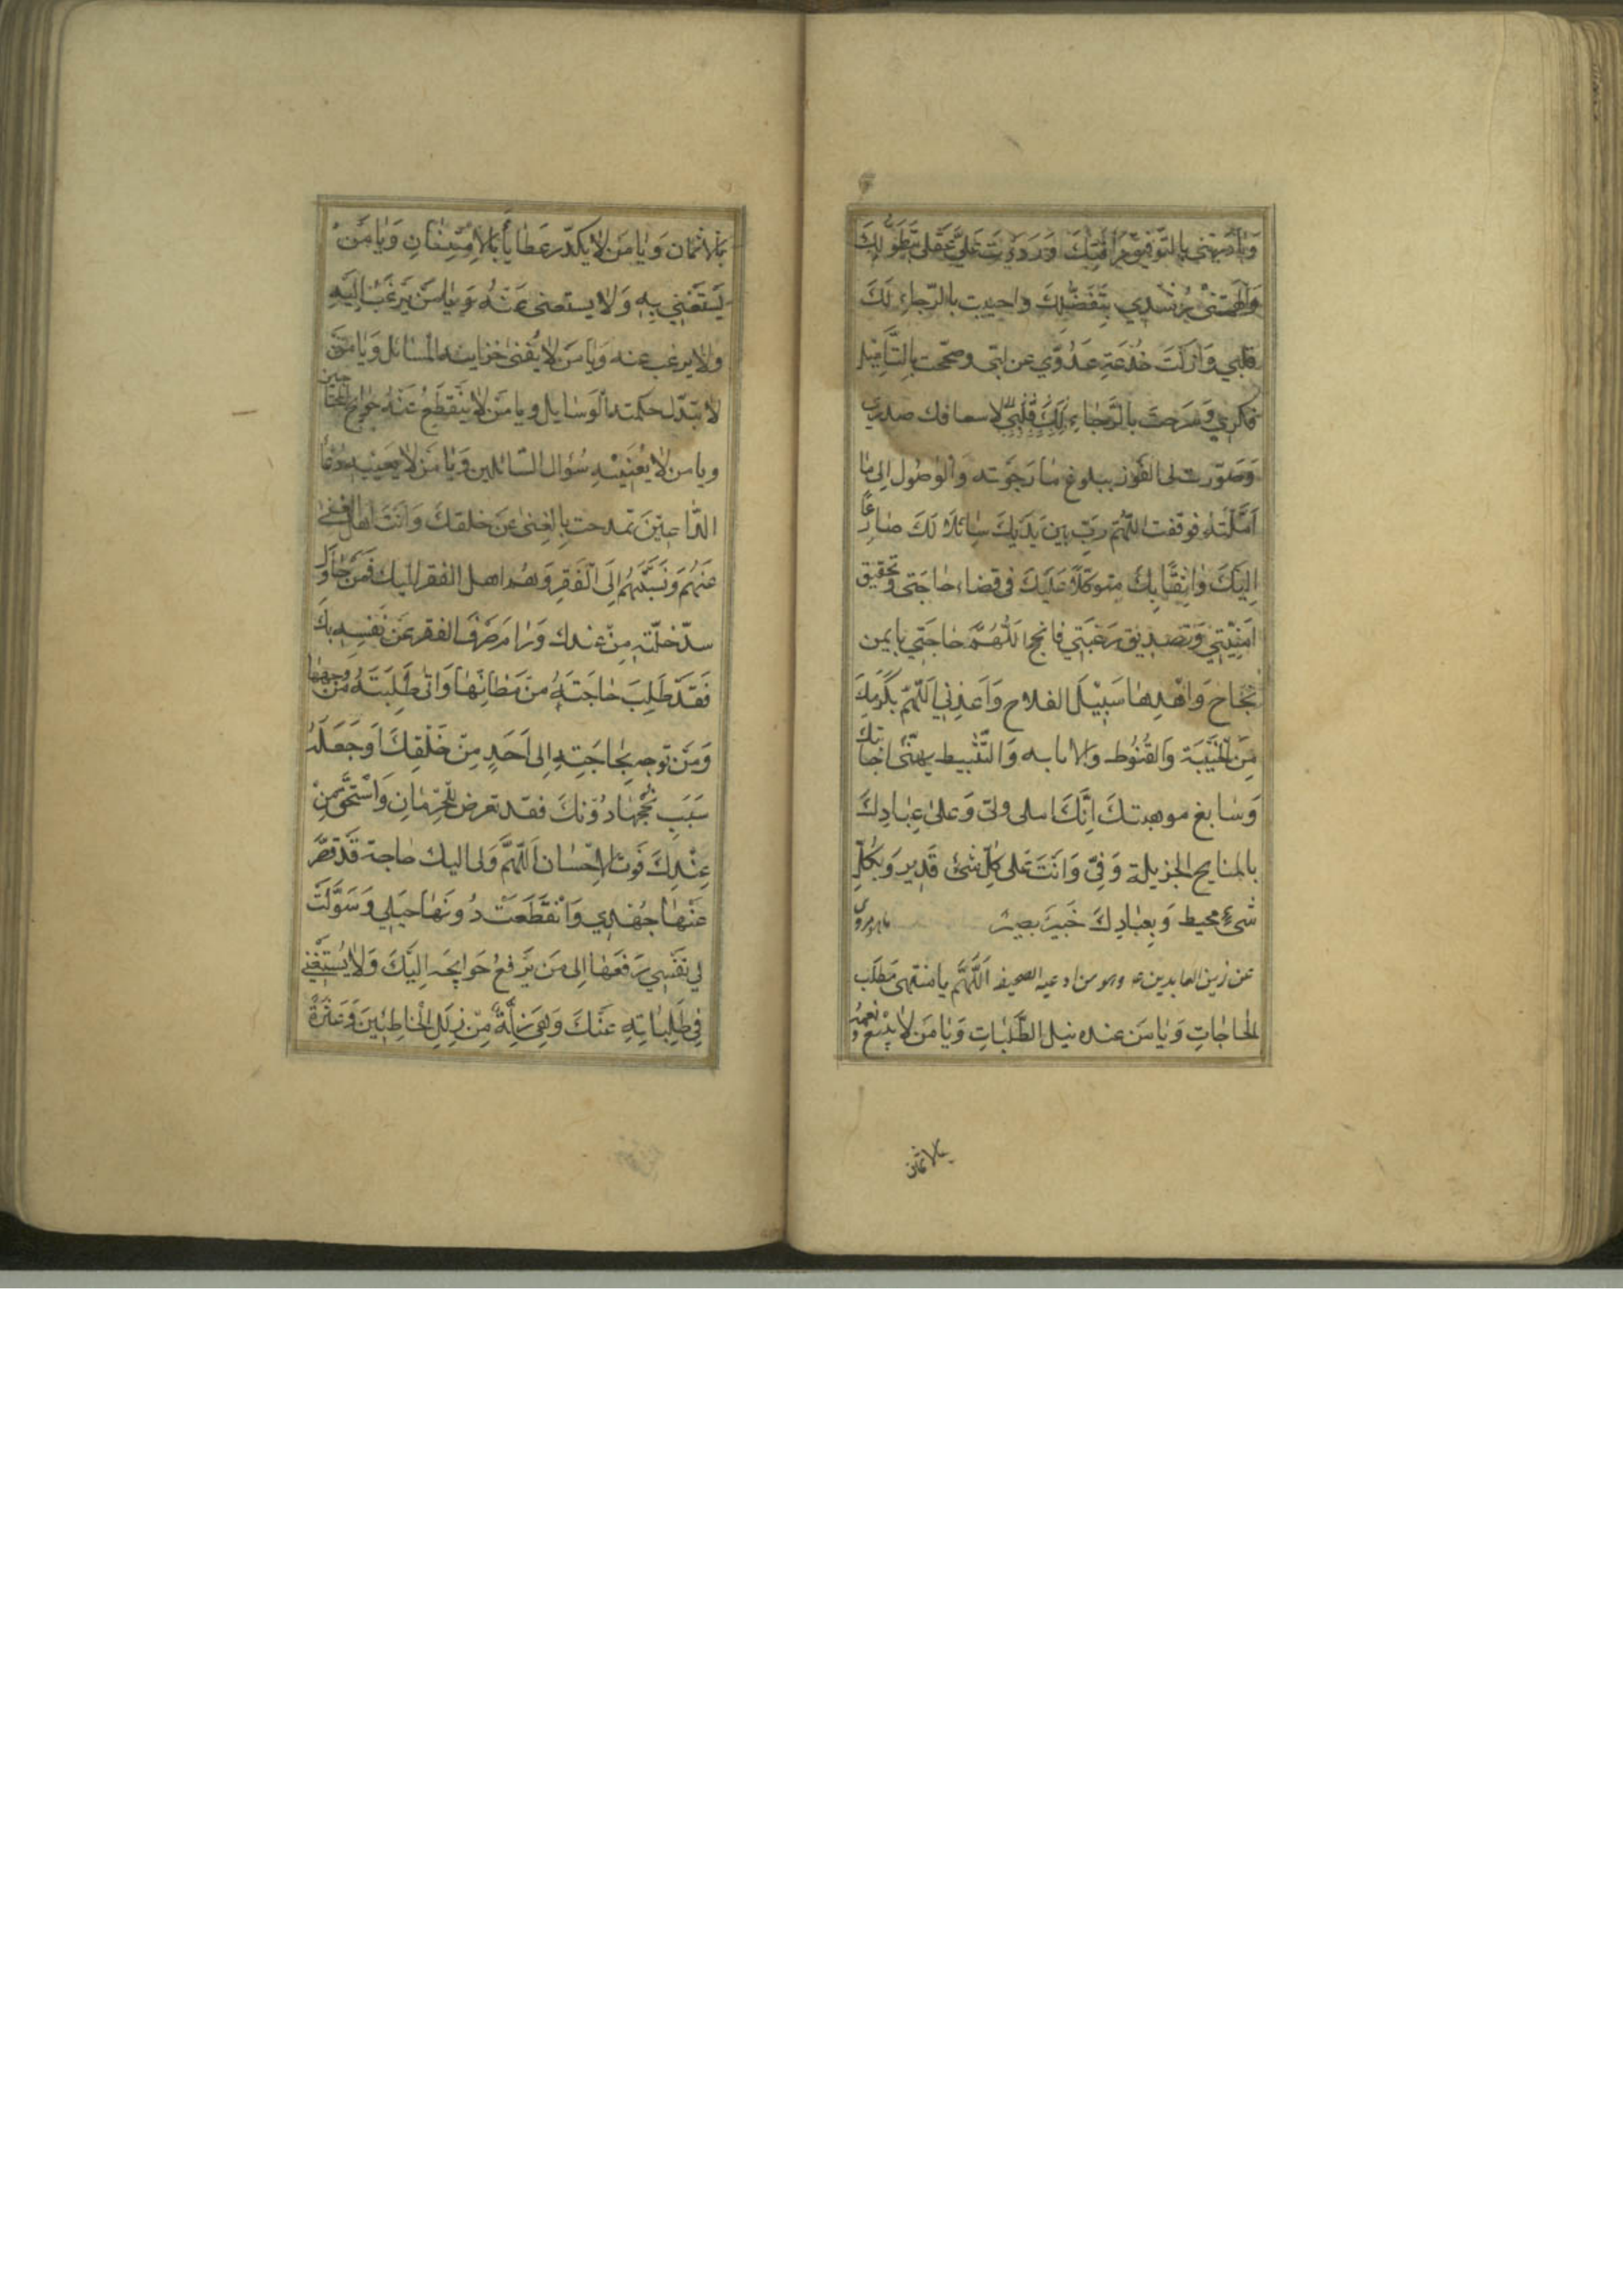 وَبَادَرْتَنِي بِالتَّوْفِيقِ مِرَافَتِكَ وَرَدَدْتَ عَلَيَّ عَقْلِي بِتَطَوُّلِكَ
وَاَلْهَمْتَنِي رُشْدِي بِتَفَضُّلِكَ واحييت بالرّجاءِ لَكَ
قلبي وَاَزَلْتَ خُدْعَةِ عَدُوّي عن لبّى وصحّحت بِالتَّأمِيلِ
فكري وَشَرَحتَ بالرَّجَاءِ لاسعافك صدري
وَصَوّرت لى الفَوز ببلوغ مَا رَجَوته وَالْوُصُول اِلى مَا
اَمَّلْتُهُ فوقفت اللّهُمّ رَبّ بين يَدَيكَ سَائلًا لَكَ ضَارِعًا
اِلَيْكَ وَاثِقًا بِكَ متوكّلًا عَلَيْكَ فى قضاء حَاجَتى وتحقيق
اُمْنِيَّتِي وَتصديق رَغْبَتِي فَانجح اللّهُمَّ حَاجَتِي بايمن
نَجَاحٍ وَاهْدِهَا سَبِيْلَ الفلاح وَاَعِذْنِي اَللّهُمّ بِكَرَمِكَ
مِنَ الْخَيْبَةِ وَالقُنُوط وَالاناءة وَالتَّثْبِيط بهنئ اجابتك
وَسَابغ موهبتكَ اِنَّكَ ملى ولىّ وَعَلى عِبَادِكَ
بالمنايح الجزيلة وَفِىّ وَانتَ عَلى كلّ شئ قَدِير وَبِكُلِّ
شىءٍ محيط وَبِعبَادِكَ خَبيرَ بصير
عن زين العابدين ع وهو من ادعيه الصحيفه اَللّهُمَّ يا منتهى مَطْلَب
الحاجَاتِ وَيَا مَن عنده نيل الطَّلِبَاتِ وَيَا مَن لا يَبيْعُ نعمَهُ
بالاثمان
بِالاثمان وَيَا مَن لا يكدّر عَطَايَاَ بِالاِمْتِنَانِ وَيَا مَنْ
يُسْتَغْنى بِه وَلا يستغنى عَنْهُ وَيَا مَنْ يَرغَبُ اِلَيْهِ
ولا يرغب عنه وَيَا مَن لا يُفنى خزاينه المسَائل وَيَا مَن
لا تبَدّل حكمته الوَسَايل ويا مَن لا يَنْقَطِعُ عَنْهُ حَوَايج المحتاجين
ويا من لا يُعَنِّيهِ سُؤال السّائلين وَيَا مَن لا يعيبه دُعَاُ
الدّاعِينَ تمدحت بِالغِنى عَن خلقكَ وَاَنتَ اهل الغنى
عَنْهُم وَنَسَبْتَهُم اِلَى الْفَقرِ وَهُم اهل الفقر اليك فَمَن حَاوَلَ
سدّ خلّته مِنْ عندك وَرَامَ صَرْفَ الفقر عَن نَفسِه بك
فَقَدْ طَلَبَ حَاجَتَهُ من مَظَانِّهَا وَاتى طَلِبَتَهُ مِنْ وجهها
وَمَن توجه بِحَاجَتِهِ اِلى اَحَدٍ مِنْ خَلْقِكَ اَوجَعَلَهُ
سَبَبَ نُجْحِهَا دُونكَ فقد تعرض لِلْحِرمَانِ وَاسْتَحَقَّ مِنْ
عِنْدِكَ فَوتَ الاِحْسَان اَللّهُمَّ وَلى اليك حَاجة قَدْ قَصَّرَ
عَنْهَا جُهْدِي وَانْقَطَعَتْ دُونَهَا حِيَلِي وَسَوَّلَتْ
لي نَفْسِي رَفعَهَا اِلى مَن يَرْفَعُ حَوَايجَه اِلَيْكَ وَلا يَسْتَغْنِي
فِي طَلِبَاتِهِ عَنْكَ وَهِيَ زَلّةٌ مِنْ زلَلِ الْخَاطِئِينَ وَعَثْرَةٌ